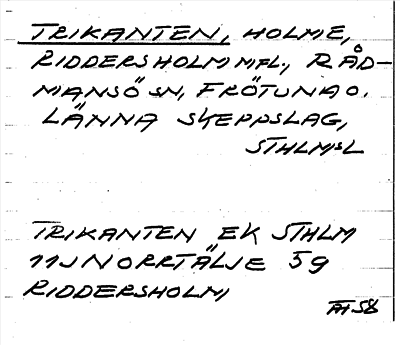 TRIKANTEN, HOLME,
RIDDERSHOLM MFL., RÅD-
MANSÖ SN, FRÖTUNA O.
LÄNNA SKEPPSLAG,
STHLMSL
TRIKANTEN EK STHLM
11J NORRTÄLJE 59
RIDDERSHOLM
58